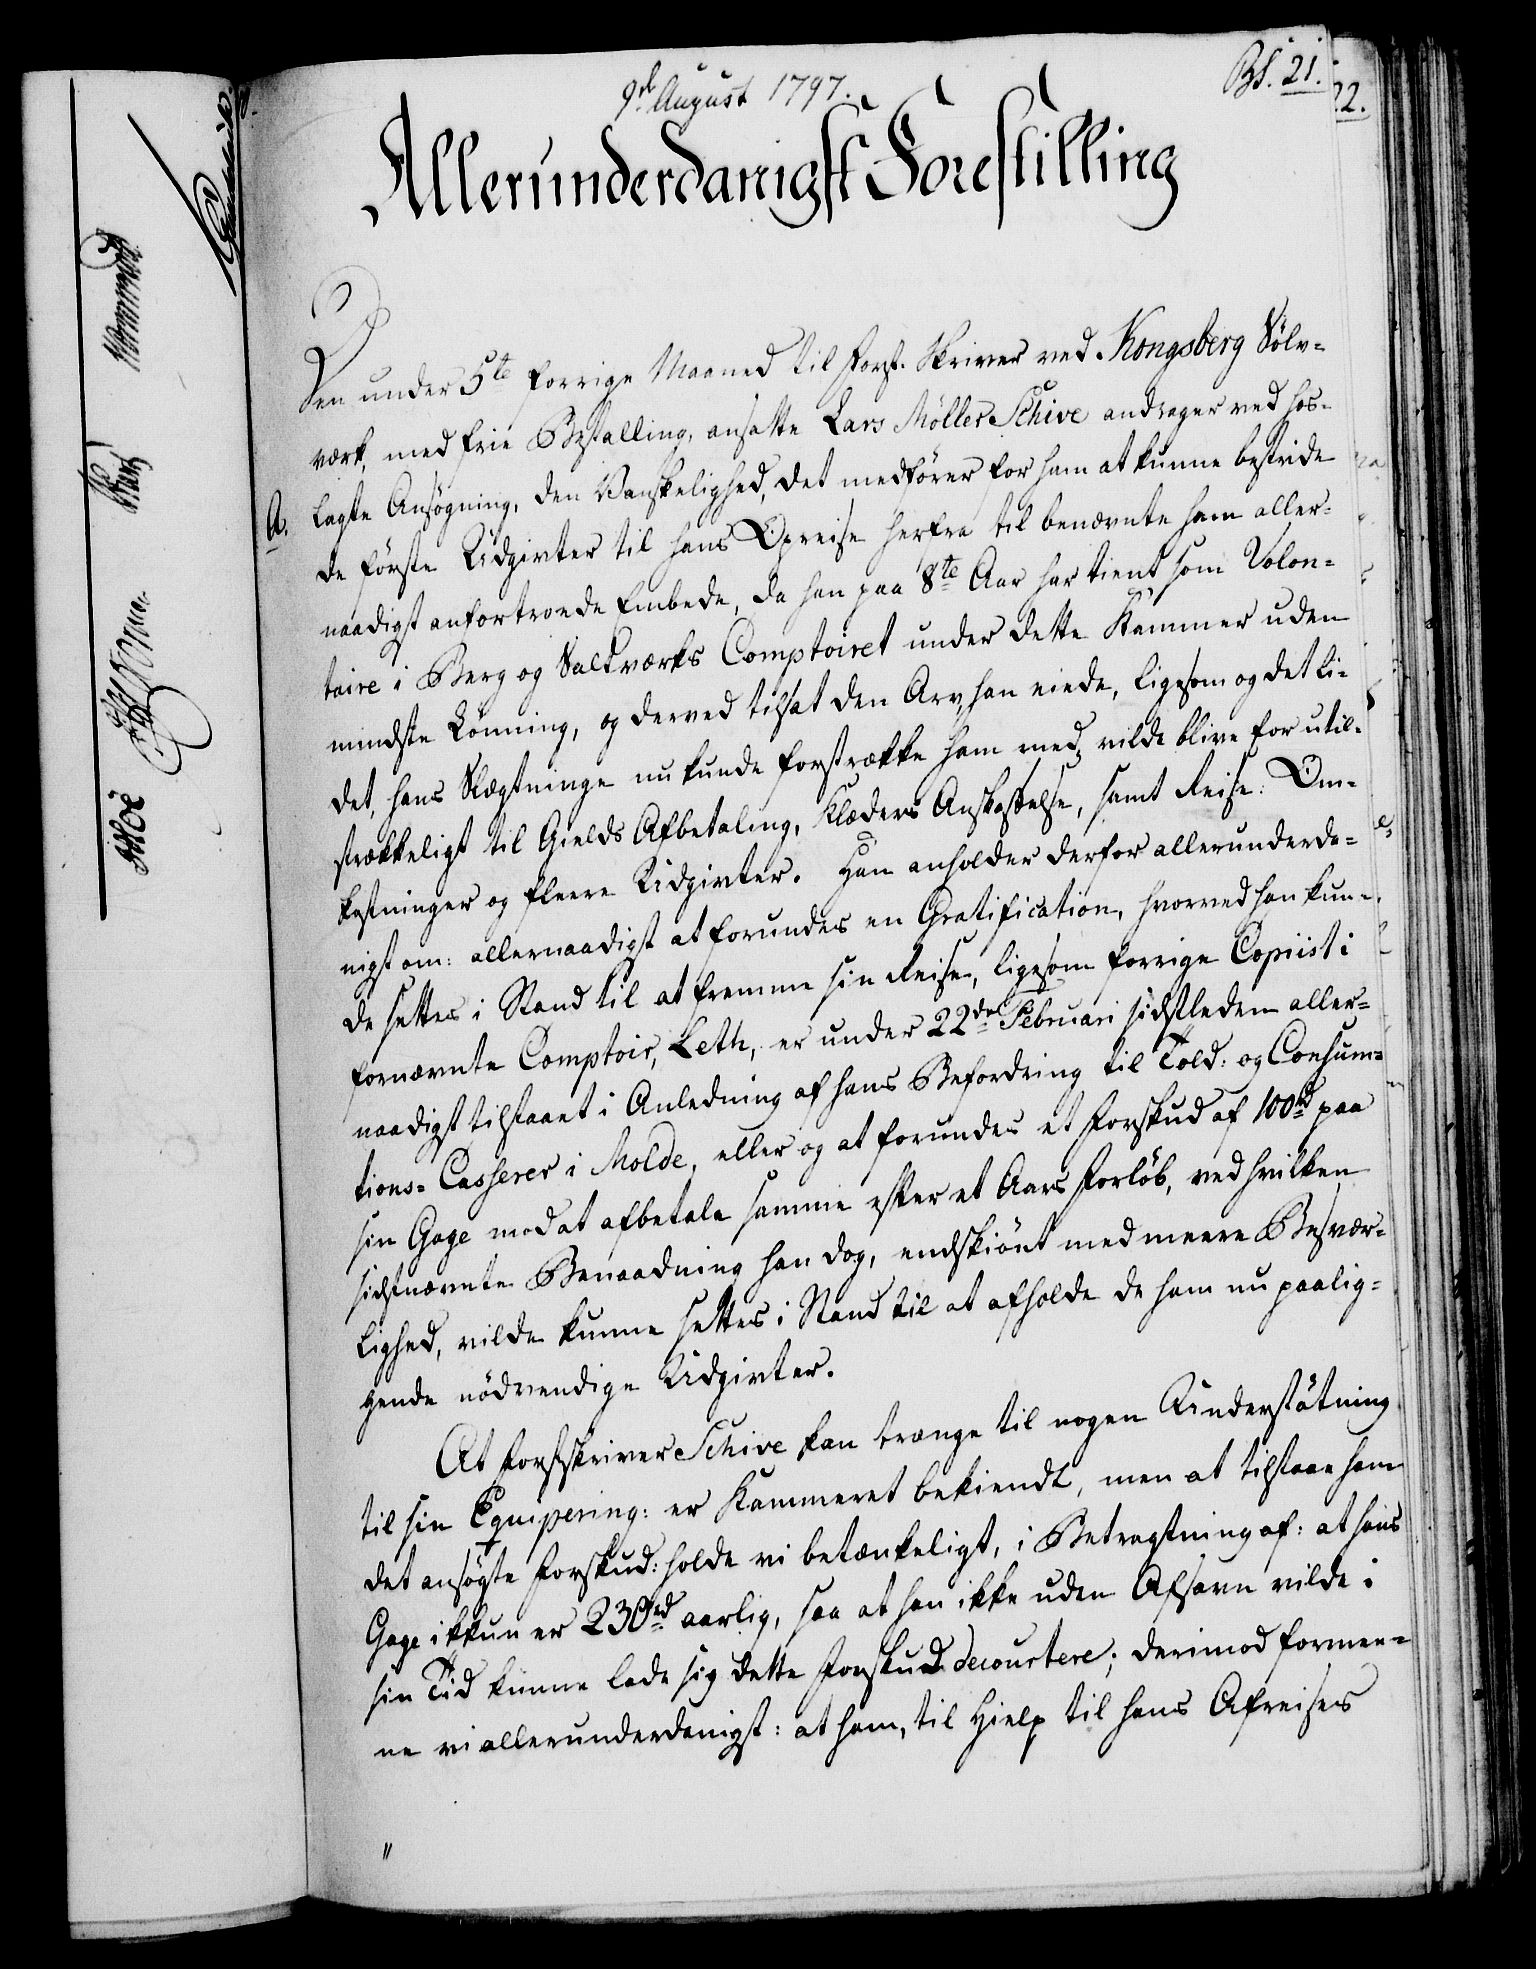 9d August 1797.
Bs. 21.
22.
Allerunderdanigst Forestilling
Den under 5te forrige Maaned til Forst-Skriver ved Kongsberg Sölv-
værk, med frie Bestalling, ansatte Lars Möller Schive andrager ved hos-
A. lagte Ansögning, den Vanskelighed, det medförer for ham at kunne bestride
de förste Udgivter til hans Opreise herfra til benævnte ham aller-
naadigst anfortroede Embede, da han paa 8te Aar har tient som Volon-
taire i Berg og Saltværks Comptoiret under dette Kammer uden
mindste Lönning, og derved tilsat den Arv, han eiede, ligesom og det li-
det, hans Slægtninge nu kunde forstrække ham med, vilde blive for util-
strækkeligt til Gields Afbetaling, Klæders Anskaffelse, samt Reise-Om-
kostninger og fleere Udgivter. Han anholder derfor allerunderda-
nigst om: allernaadigst at forundes en Gratification, hvorved han kun-
de settes i Stand til at fremme sin Reise, ligesom forrige Copiist i
fornævnte Comptoir, Leth, er under 22de Februari sidstleden aller-
naadigst tilstaaet i Anledning af hans Befordring til Told- og Consum-
tions-Casserer i Molde, eller og at forundes et Forskud af 100rd paa
sin Gage mod at afbetale samme efter et Aars Forlöb, ved hvilken
sidstnævnte Benaadning han dog, endskiönt med meere Besvær-
lighed, vilde kunne settes i Stand til at afholde de ham nu paalig-
gende nödvendige Udgivter.
At Forstskriver Schive kan trænge til nogen Understötning
til sin Equipering: er Kammeret bekiendt, men at tilstaae ham
det ansögte Forskud: holde vi betænkeligt, i Betragtning af: at hans
Gage ikkun er 230rd aarlig, saa at han ikke uden Afsavn vilde i
sin Tid kunne lade sig dette Forskud decourtere; derimod formee-
ne vi allerunderdanigst: at ham, til Hielp til hans Afreises
"